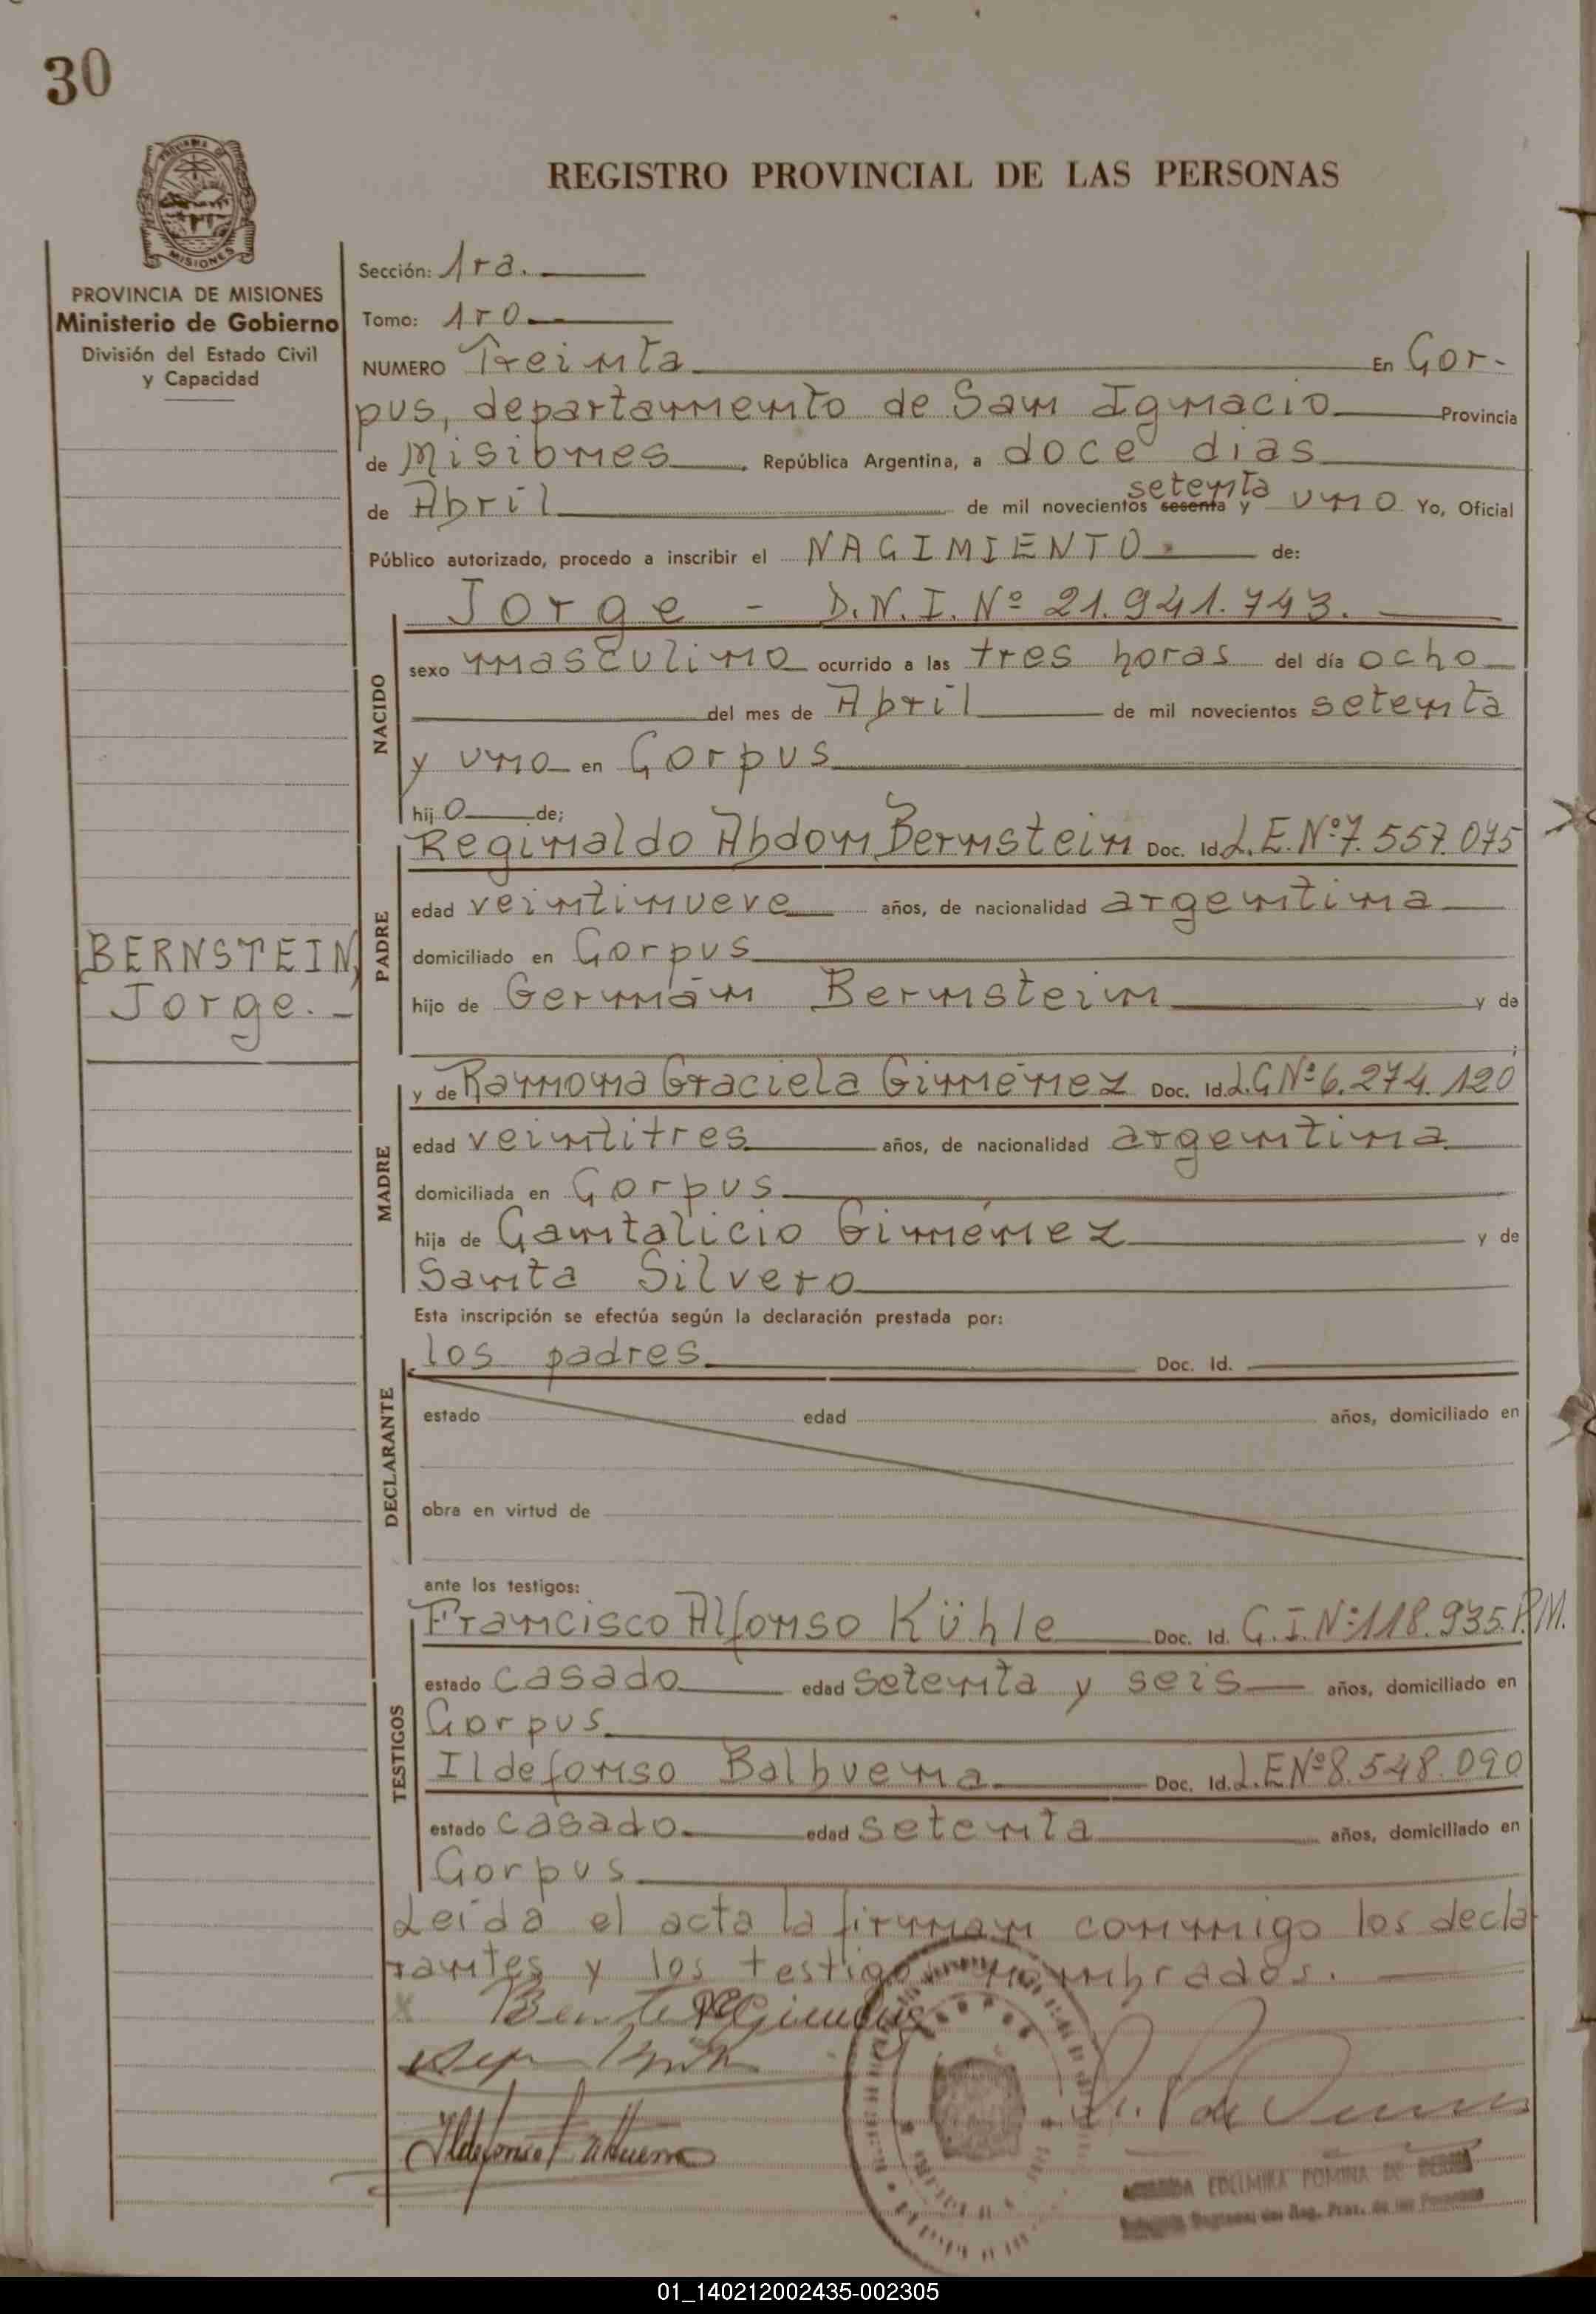 30
REGISTRO PROVINCIAL DE LAS PERSONAS
MISIONES
PROVINCIA DE MISIONES
Ministerio de Gobierno
División del Estado Civil
y Capacidad
Sección: 1ra.
Tomo: 1ro
NUMERO Treinta En Cor-
pus, departamento de San Ignacio Provincia
de Misiones, República Argentina, a doce dias
de Abril de mil novecientos sesenta setenta y uno Yo, Oficial
Público autorizado, procedo a inscribir el NACIMIENTO de:
Jorge - D.N.I. Nº 21.941.743.
NACIDO
sexo masculino ocurrido a las tres horas del día ocho
del mes de Abril de mil novecientos setenta
y uno en Corpus
hijo de;
Reginaldo Abdon Bernstein Doc. Id. L.E. Nº 7.557.075
PADRE
edad veintinueve años, de nacionalidad argentina
domiciliado en Corpus
hijo de Germán Bernstein y de
BERNSTEIN,
Jorge.-
y de Ramona Graciela Giménez Doc. Id. L.C Nº 6.274.120
MADRE
edad veintitres años, de nacionalidad argentina
domiciliada en Corpus
hija de Cantalicio Giménez y de
Santa Silvero
Esta inscripción se efectúa según la declaración prestada por:
los padres Doc. Id.
DECLARANTE
estado edad años, domiciliado en
obra en virtud de
ante los testigos:
Francisco Alfonso Kühle Doc. Id. C.I. Nº 118.935.P.M.
TESTIGOS
estado casado edad setenta y seis años, domiciliado en
Corpus
Ildefonso Balbuena Doc. Id. L.E Nº 8.548.090
estado casado edad setenta años, domiciliado en
Corpus
Leida el acta la firman conmigo los decla
rantes y los testigos nombrados.
Ildefonso Balbuena
EDELMIRA POMINA DE
01_140212002435-002305